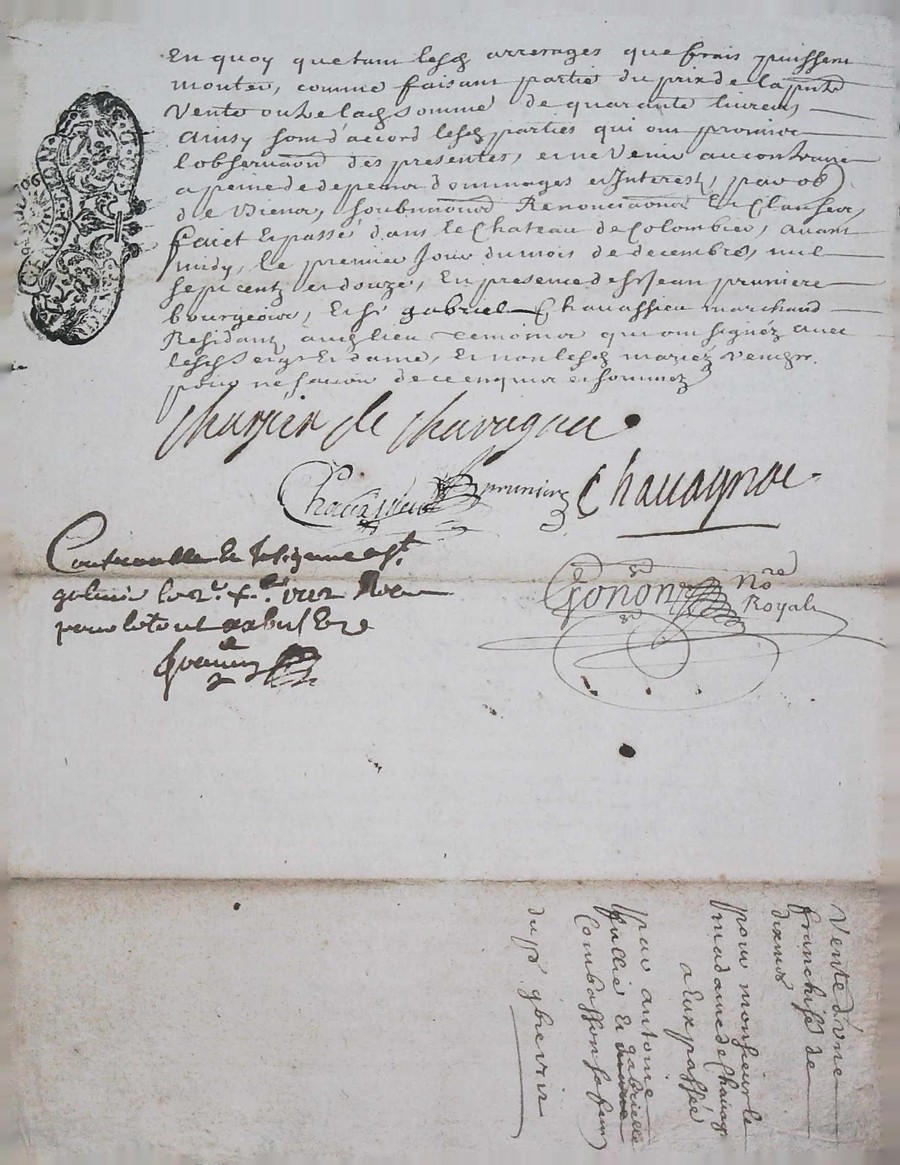 En quoy que tant lesd arrerages que frais puissent
monter, comme faisant partie du prix de la pnte
Vente outre lad somme de quarante livres,
Ainsy sont d'accord lesd parties qui ont promis
l'observaon des presentes, et ne Venir au contraire
a peine de depens dommages et Interest, par ob
de Biens, soubmission Renonciaons Et Clauses,
faict Et passé dans le Chateau de Colombier, avant
midy, le premier Jour du mois de decembre, mil
sept centz et douze, En presence de sr Jean pruniere
bourgeois, Et sr gabriel Chavassieu marchand
Residant aud lieu temoins qui ont signez avec
lesd Seigr Et dame, Et non lesd mariez Vendrs.
pour ne sçavoir de ce enquis et sommez
de Chavagnac
Chavassieu pruniere Chavagnac
Controuollé Et
galmié le 2e Xbre 1712
pour le tout
Gonon Nore
Royal
Vente d'Une
franchise de
dixmes
pour monsieur le
madame de Chavag
a Eux passée
par antoine
Et gabrielle
Combasson sa fem
du pr Xbre 1712